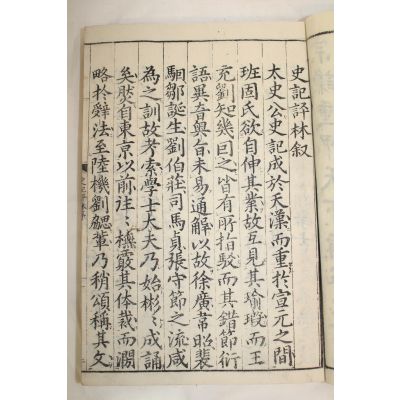 史記評林叙
太史公史記成於天漢而重於宣元之間
班固氏欲自伸其業故互見其瑜瑕而王
充劉知幾回之皆有所指駁而其錯節衍
語異音奧旨未易通解以故徐廣韋昭裴
駰鄒誕生劉伯莊司馬貞張守節之流咸
為之訓故考索學士大夫乃始彬〻成誦
矣然自東京以前注〻櫽霰其体裁而濶
略於辭法至陸機劉勰輩乃稍頌稱其文